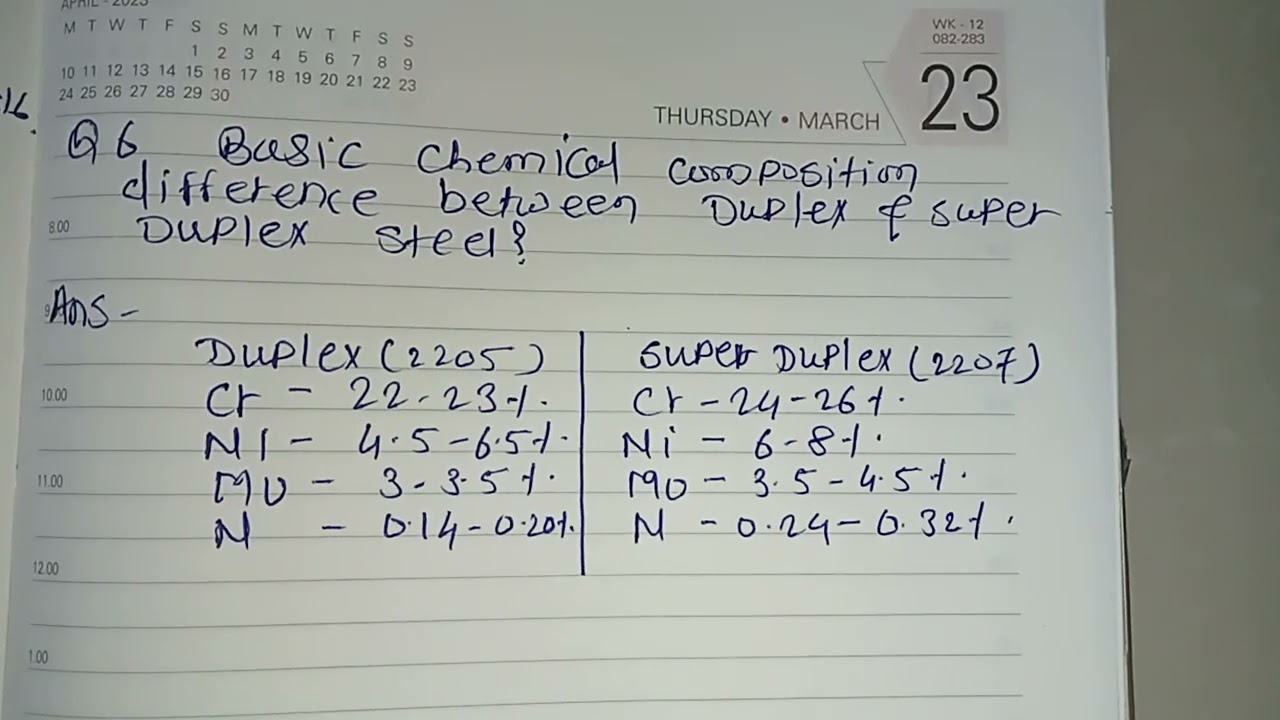 APRIL - 2023
M T W T F S S M T W T F S S
1 2 3 4 5 6 7 8 9
10 11 12 13 14 15 16 17 18 19 20 21 22 23
24 25 26 27 28 29 30
WK - 12
082-283
THURSDAY • MARCH 23
16.
Q6 Basic Chemical composition
difference between Duplex & super
8.00 Duplex steel?
9 Ans -
Duplex (2205) super Duplex (2207)
10.00 Cr - 22-23%. Cr - 24-26%.
Ni - 4.5-6.5%. Ni - 6-8%.
11.00 Mo - 3-3.5%. Mo - 3.5-4.5%.
N - 0.14-0.20%. N - 0.24-0.32%.
12.00
1.00